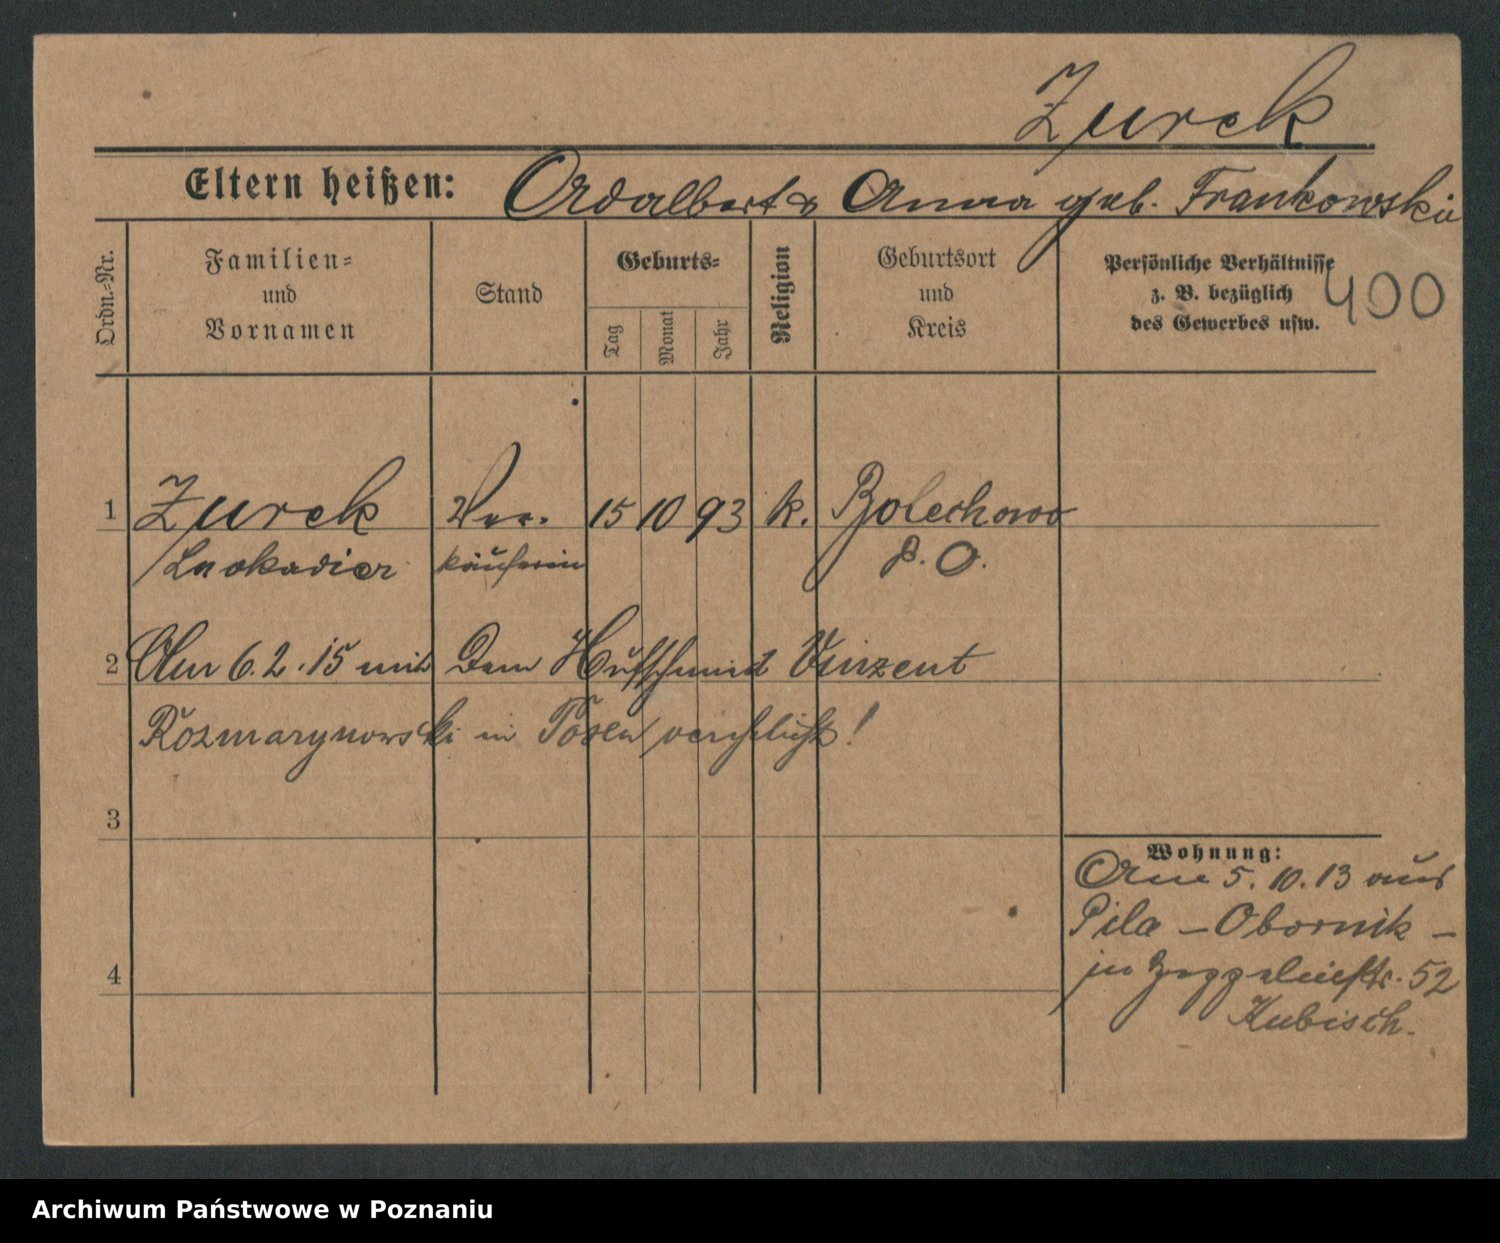 Zurek
Eltern heißen: Adalbert & Anna geb. Frankowski
Ordn.-Nr.
Familien-
und
Vornamen
Stand
Geburts-
Tag
Monat
Jahr
Religion
Geburtsort
und
Kreis
Persönliche Verhältnisse
z. B. bezüglich
des Gewerbes usw.
400
1 Zurek Ver- 15 10 93 k. Bolechowo
Leokadia käuferin P. O.
2 Am 6.2.15 mit dem Hufschmied Vinzent
Rozmarynowski in Posen verehelicht!
3
4
Wohnung:
Am 5.10.13 aus
Pila - Obornik -
in Zeppelinstr. 52
Kubisch.
Archiwum Państwowe w Poznaniu